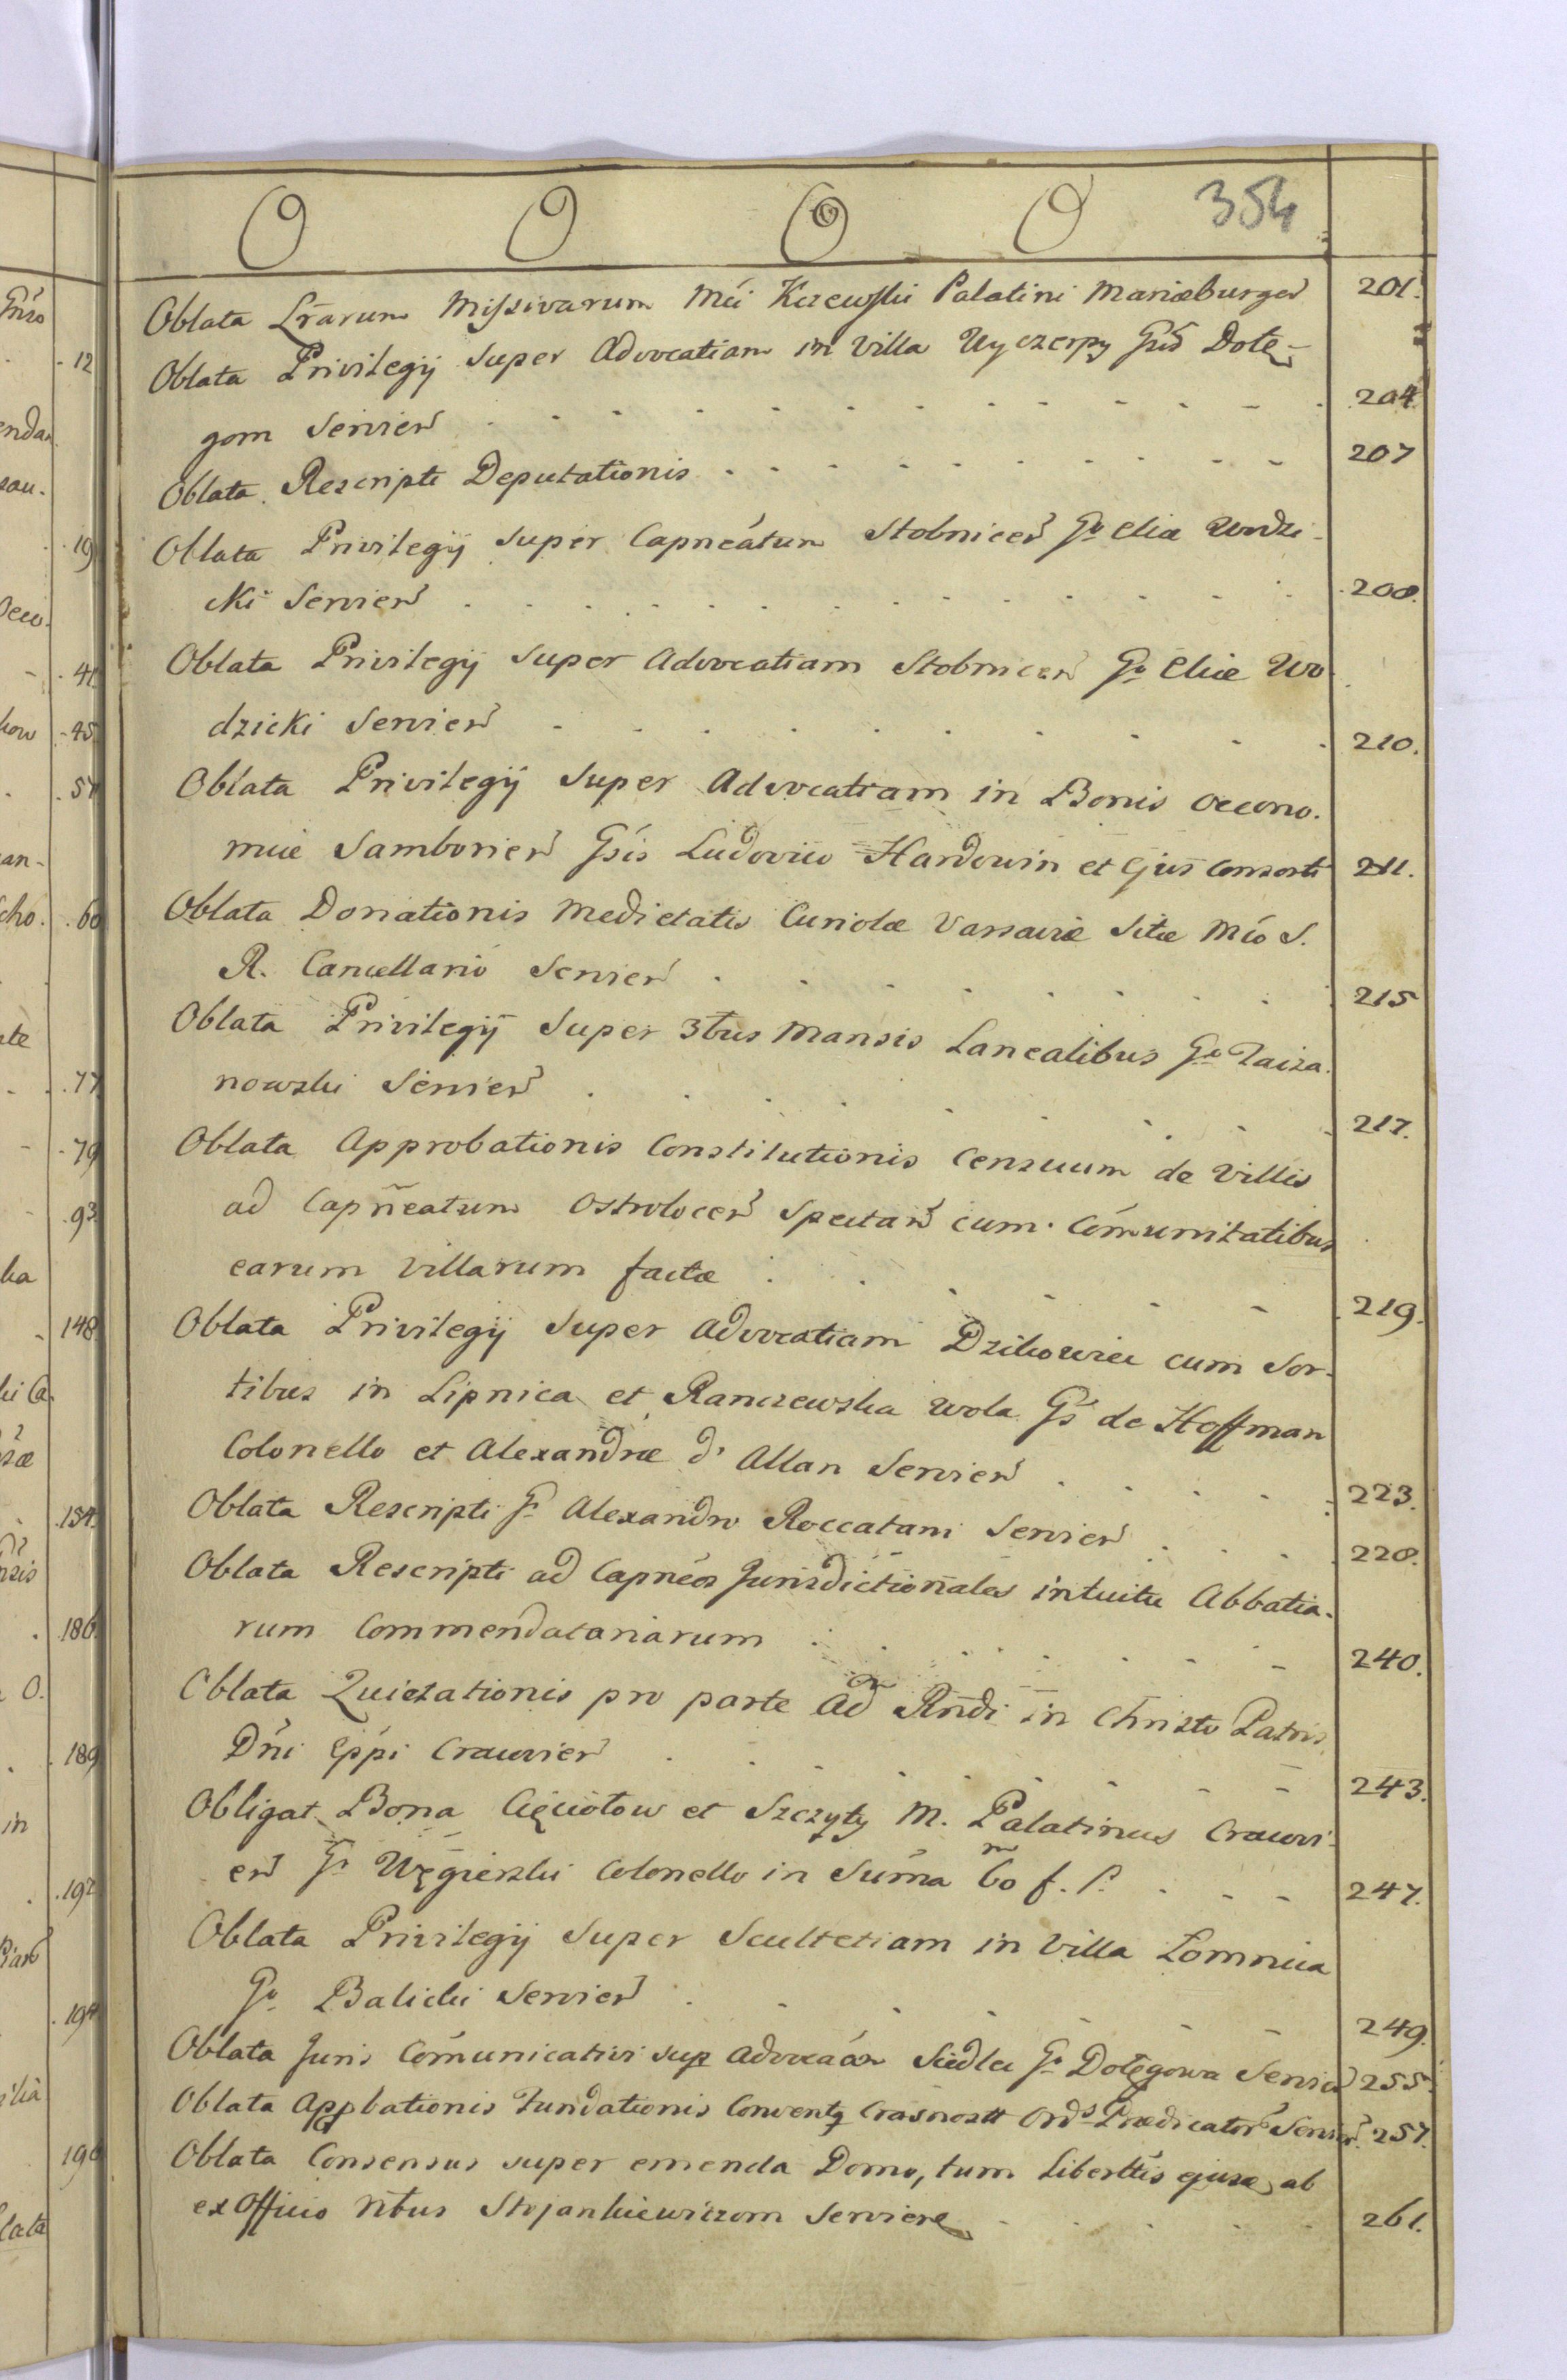 O O O O 354
Oblata Lrarum Missivarum Mci Kczewski Palatini Mariæburgen 201.
Oblata Privilegij super Advocatiam in Villa Wyczerpy Gsis Dołę-
gom Servien 204
Oblata Rescripti Deputationis 207
Oblata Privilegij super Capneatum Stobnicen Go Eliæ Wodzi-
cki Servien 208.
Oblata Privilegij super Advocatiam Stobnicen Go Eliæ Wo
dzicki Servien 210.
Oblata Privilegij super Advocatiam in Bonis Oecono.
miæ Samborien Gsis Ludovico Hardouin et Ejus Consorti 211.
Oblata Donationis Medietatis Curiolæ Varsaviæ Sitæ Mco S.
R. Cancellario Servien 215
Oblata Privilegij super 3bus Mansis Lanealibus Go Zaiza.
nowski Servien 217.
Oblata Approbationis Constitutionis Censuum de Villis
ad Capneatum Ostrolocen Spectan cum Comunitatibus
earum Villarum factæ 219.
Oblata Privilegij super Advocatiam Dzikowiec cum Sor-
tibus in Lipnica et Ranczewska Wola Gs de Hoffman
Colonello et Alexandræ d'Allan Servien 223.
Oblata Rescripti G. Alexandro Roccatani Servien 228.
Oblata Rescripti ad Capneos Jurisdictionales intuitu Abbatia-
rum Commendatariarum 240.
Oblata Quietationis pro parte Ad Rndi in Christo Patris
Dni Eppi Cracovien 243.
Obligat Bona Cięciołow et Szczyty M. Palatinus Cracovi-
en Gr Węgierski Colonello in Suma 60 f. P. 247.
Oblata Privilegij super Scultetiam in Villa Lomnica
Go Balicki Servien 249.
Oblata Juris Comunicativi sup Advocaon Siedlec Go Dołęgowa Servien 255.
Oblata Appbationis Fundationis Conventq Crasnostt Ords Prædicator Servien 257.
Oblata Consensus super emenda Domo, tum Liberttis ejusæ ab
ex Officio Nbus Stojankiewiczom Serviens 261.